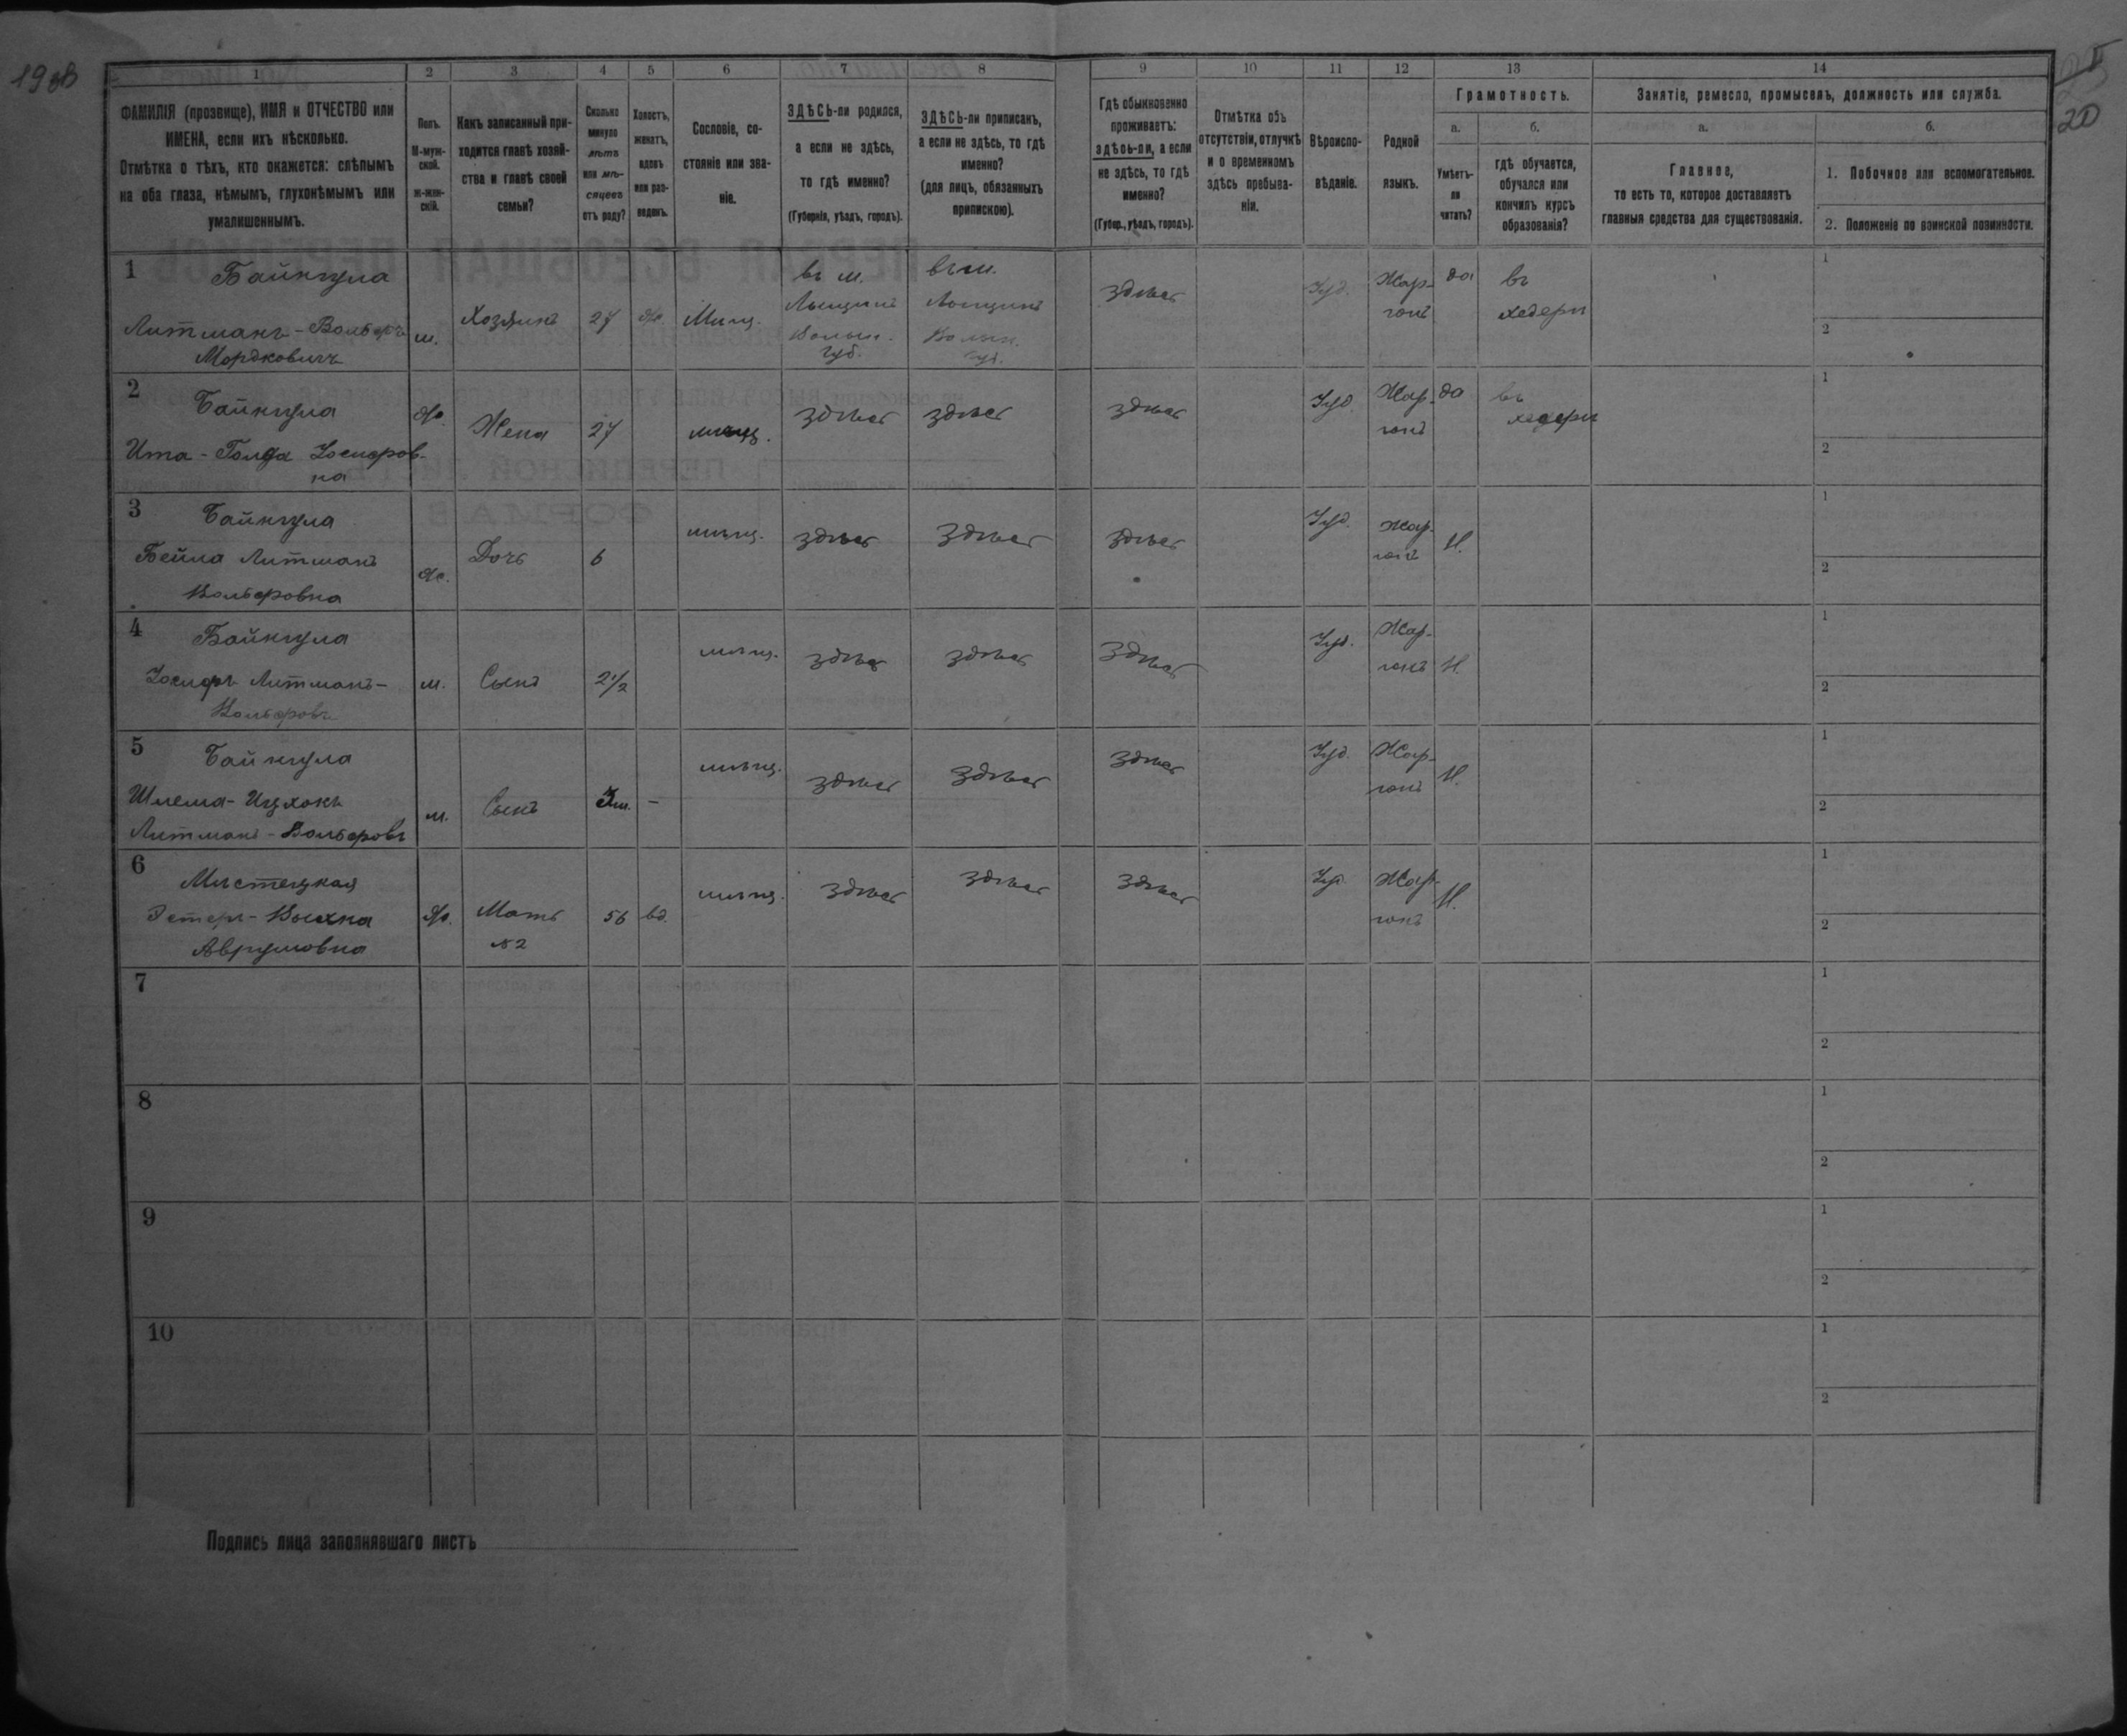 19об
20
1 2 3 4 5 6 7 8 9 10 11 12 13 14
ФАМИЛІЯ (прозвище), ИМЯ и ОТЧЕСТВО или
ИМЕНА, если ихъ нѣсколько.
Отмѣтка о тѣхъ, кто окажется: слѣпымъ
на оба глаза, нѣмымъ, глухонѣмымъ или
умалишеннымъ.
Полъ.
М-муж-
ской.
ж-жен-
скій.
Какъ записанный при-
ходится главѣ хозяй-
ства и главѣ своей
семьи?
Сколько
минуло
лѣтъ
или мѣ-
сяцевъ
отъ роду?
Холостъ,
женатъ,
вдовъ
или раз-
веденъ.
Сословіе, со-
стояніе или зва-
ніе.
ЗДѢСЬ-ли родился,
а если не здѣсь,
то гдѣ именно?
(Губернія, уѣздъ, городъ).
ЗДѢСЬ-ли приписанъ,
а если не здѣсь, то гдѣ
именно?
(для лицъ, обязанныхъ
припискою).
Гдѣ обыкновенно
проживаетъ:
здѣсь-ли, а если
не здѣсь, то гдѣ
именно?
(Губер., уѣздъ, городъ).
Отмѣтка объ
отсутствіи, отлучкѣ
и о временномъ
здѣсь пребыва-
ніи.
Вѣроиспо-
вѣданіе.
Родной
языкъ.
Грамотность.
а.
Умѣетъ-
ли
читать?
б.
гдѣ обучается,
обучался или
кончилъ курсъ
образованія?
Занятіе, ремесло, промыселъ, должность или служба.
а.
Главное,
то есть то, которое доставляетъ
главныя средства для существованія.
б.
1. Побочное или вспомогательное.
2. Положеніе по воинской повинности.
1 Байкула
Литманъ-Вольфъ
Мордковичъ
м.
Хозяинъ
27
Мѣщ.
въ м.
Волын.
губ.
въ м.
Волын.
губ.
здѣсь
Іуд.
Жар-
гонъ
да
въ
хедери
1
2
2 Байкула
Ита-Голда Іосифов-
на
ж.
Жена
27
мѣщ.
здѣсь
здѣсь
здѣсь
Іуд.
Жар-
гонъ
да
въ
хедери
1
2
3 Байкула
Бейла Литманъ
Вольфовна
ж.
Дочь
6
мѣщ.
здѣсь
здѣсь
здѣсь
Іуд.
Жар-
гонъ
Н.
1
2
4 Байкула
Іосифъ Литманъ-
Вольфовъ
м.
Сынъ
2 1/2
мѣщ.
здѣсь
здѣсь
здѣсь
Іуд.
Жар-
гонъ
Н.
1
2
5 Байкула
Шлема-Ицхокъ
Литманъ-Вольфовъ
м.
Сынъ
3 м.
-
мѣщ.
здѣсь
здѣсь
здѣсь
Іуд.
Жар-
гонъ
Н.
1
2
6 Мистецкая
Эстеръ-
Аврумовна
ж.
Мать
№ 2
56
вд.
мѣщ.
здѣсь
здѣсь
здѣсь
Іуд.
Жар-
гонъ
Н.
1
2
7
1
2
8
1
2
9
1
2
10
1
2
Подпись лица заполнявшаго листъ